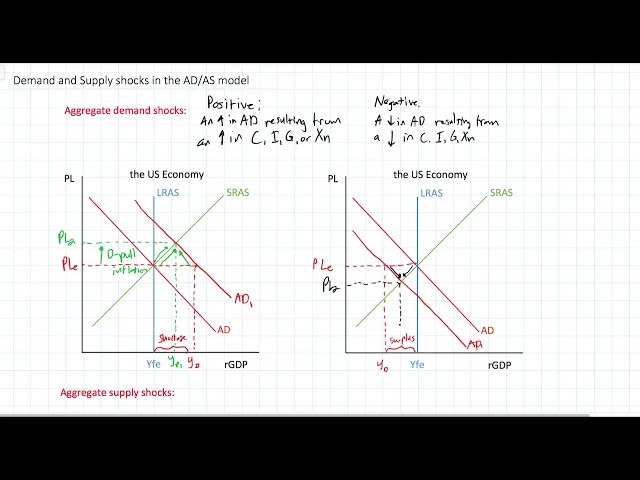 Demand and Supply shocks in the AD/AS model
Aggregate demand shocks:
Positive:
An ↑ in AD resulting from
an ↑ in C, I, G, or Xn
Negative:
A ↓ in AD resulting from
a ↓ in C, I, G, Xn
the US Economy
PL
LRAS
SRAS
PL2
D-pull
inflation
PLe
AD1
AD
shortage
Yfe
Ye1
y0
rGDP
the US Economy
PL
LRAS
SRAS
PLe
PL2
AD
AD1
surplus
y0
Yfe
rGDP
Aggregate supply shocks: